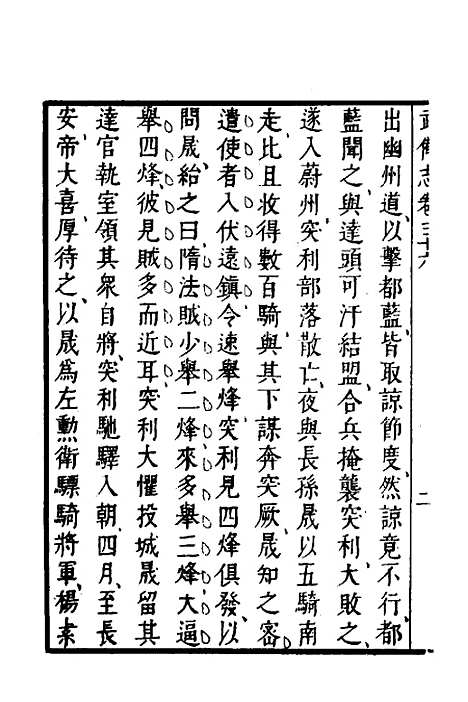 武備志卷三十六
二
出幽州道以擊都藍皆取諒節度然諒竟不行都
藍聞之與達頭可汗結盟合兵掩襲突利大敗之
遂入蔚州突利部落散亡夜與長孫晟以五騎南
走比且收得數百騎與其下謀奔突厥晟知之密
遣使者入伏遠鎮令速舉烽突利見四烽俱發以
問晟紿之曰隋法賊少舉二烽來多舉三烽大逼
舉四烽彼見賊多而近耳突利大懼投城晟留其
達官執室領其衆自將突利馳驛入朝四月至長
安帝大喜厚待之以晟爲左勳衛驃騎將軍楊素